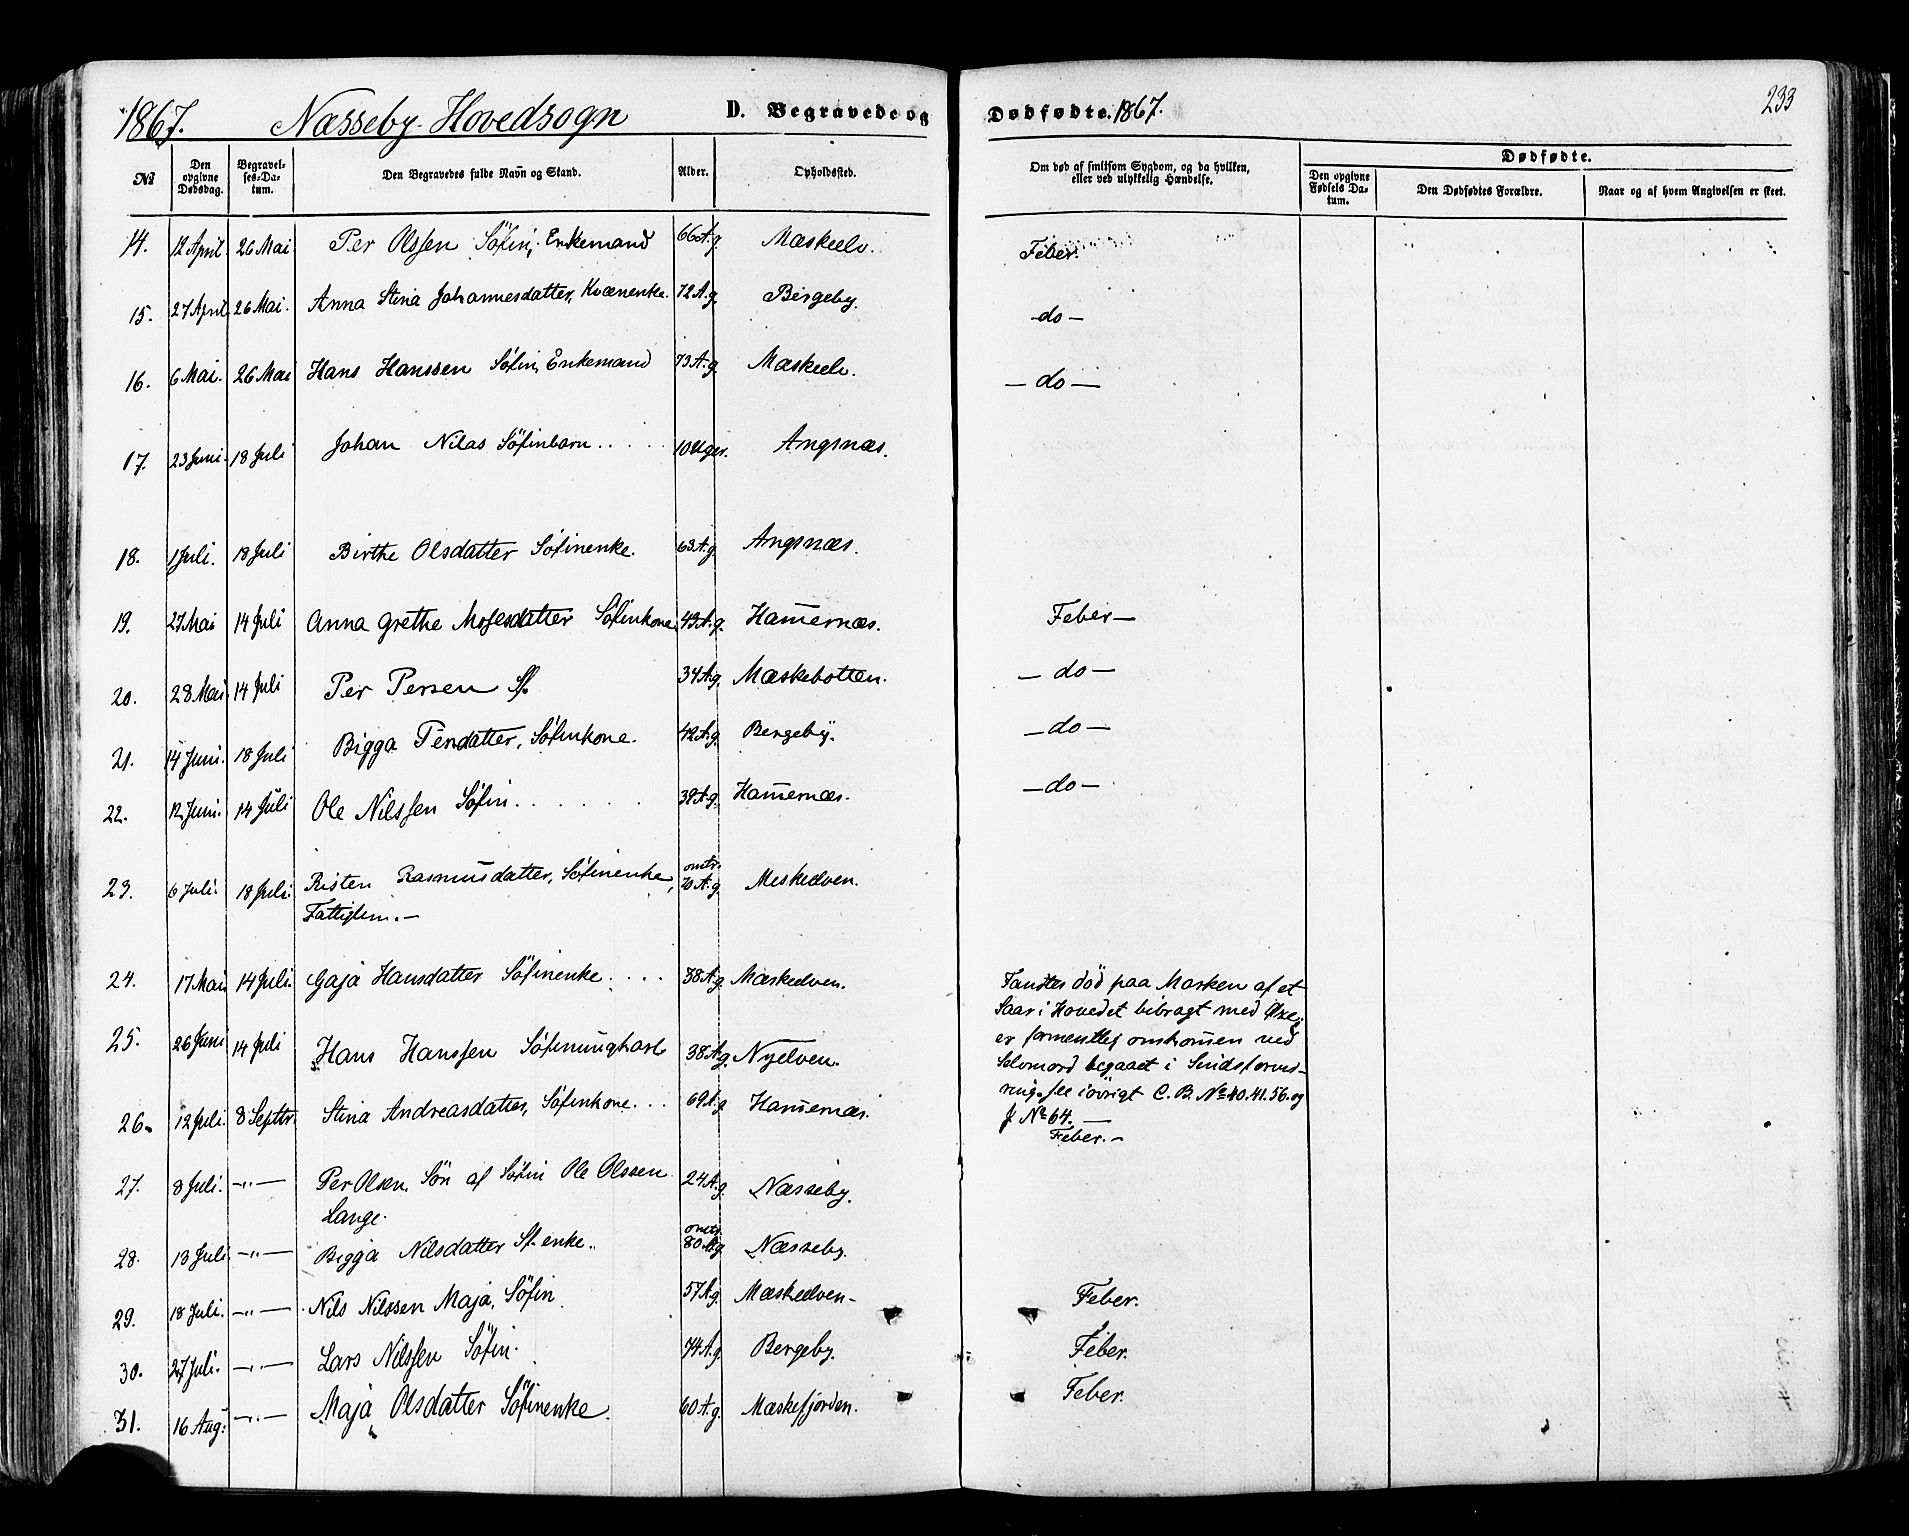 1867. Næsseby Hovedsogn D. Begravede og Dødfødte. 1867. 233
№ Den opgivne Dødsdag. Begravelses-Datum. Den Begravedes fulde Navn og Stand. Alder. Opholdssted. Om død af smitsom Sygdom, og da hvilken, eller ved ulykkelig Hændelse. Dødfødte.
Den opgivne Fødsels Datum. Den Dødfødtes Forældre. Naar og af hvem Angivelsen er skeet.
14. 12 April. 26 Mai Per Olssen Söfin, Enkemand 66 A. g. Mæskeelv. Feber.
15. 27 April 26 Mai. Anna Stina Johannesdatter, Kvænenke. 72 A. g. Bergeby. -do-
16. 6 Mai. 26 Mai Hans Hanssen Söfin, Enkemand 73 A. g. Mæskeelv. - do -
17. 23 Juni. 18 Juli Johan Nilas Söfinbarn . . . . . 10 Uger. Angsnæs.
18. 1 Juli. 18 Juli Birthe Olsdatter Söfinenke. 63 A. g. Angsnæs.
19. 27 Mai 14 Juli Anna Grethe Mosesdatter Söfinkone 43 A. g. Ham̅ernæs. Feber -
20. 28 Mai 14 Juli Per Persen Sf. 34 A. g. Mæskebotten. - do -
21. 14 Juni. 18 Juli Bigga Persdatter, Söfinkone. 42 A. g. Bergeby. - do -
22. 12 Juni. 14 Juli Ole Nilssen Söfin. . . . . . . 39 A. g. Ham̅ernæs. - do -
23. 6 Juli. 18 Juli. Risten Rasmusdatter, Söfinenke, omtr. 70 A. g. Meskelven.
Fattiglem. -
24. 17 Mai 14 Juli. Gaja Hansdatter Söfinenke . . . . 88 A. g. Mæskeelven. Fandtes död paa Marken af et
Saar i Hovedet bibragt med Øxe;
25. 26 Juni 14 Juli Hans Hanssen Söfinungkarl 38 A. g. Nyelven. er formentlig omkom̅en ved
Selvmord begaaet i Sindsforvir-
ring. See iövrigt C. B. № 40. 41. 56. og
J № 64. -
26. 12 Juli. 8 Septbr. Stina Andreasdatter, Söfinkone. . . 69 A. g. Ham̅ernæs. Feber. -
27. 8 Juli. -"- Per Olsen, Sön af Söfin Ole Olssen 24 A. g. Næsseby.
Lange.
28. 13 Juli. -"- Bigga Nilsdatter Sf. enke. omtr. 80 A. g. Næsseby.
29. 18 Juli. -"- Nils Nilssen Maja, Söfin 57 A. g. Mæskeelven - Feber.
30. 27 Juli. -"- Lars Nilssen Söfin. 74 A. g. Bergeby. Feber.
31. 16 Aug: -"- Maja Olsdatter Söfinenke. 60 A. g. Mæskefjorden. Feber.